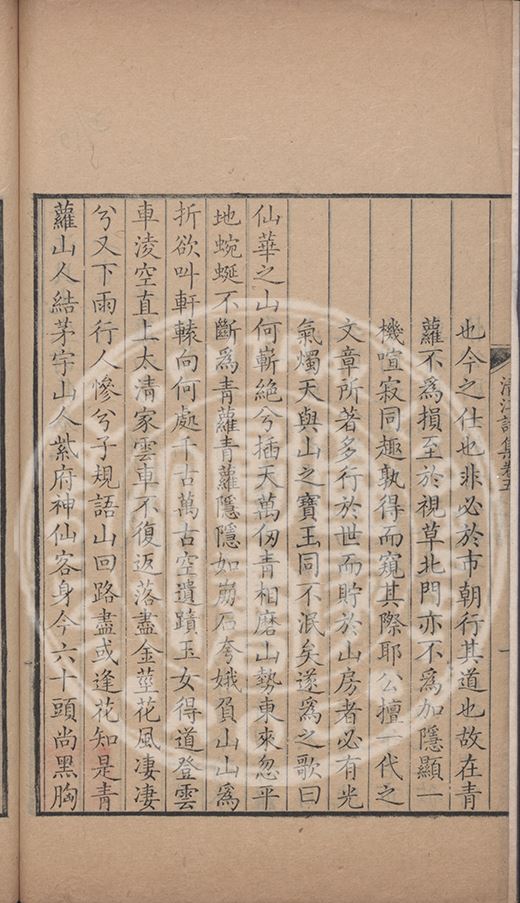 清江詩集卷五
也今之仕也非必於市朝行其道也故在青
蘿不爲損至於視草北門亦不爲加隱顯一
機喧寂同趣孰得而窺其際耶公擅一代之
文章所著多行於世而貯於山房者必有光
氣燭天與山之寶玉同不泯矣遂爲之歌曰
仙華之山何嶄絶兮插天萬仞青相磨山勢東來忽平
地蜿蜒不斷爲青蘿青蘿隱隱如崩石夸娥負山山爲
折欲叫軒轅向何處千古萬古空遺蹟玉女得道登雲
車淩空直上太清家雲車不復返落盡金莖花風凄凄
兮又下雨行人慘兮子規語山回路盡或逢花知是青
蘿山人結茅宇山人紫府神仙客身今六十頭尚黑胸